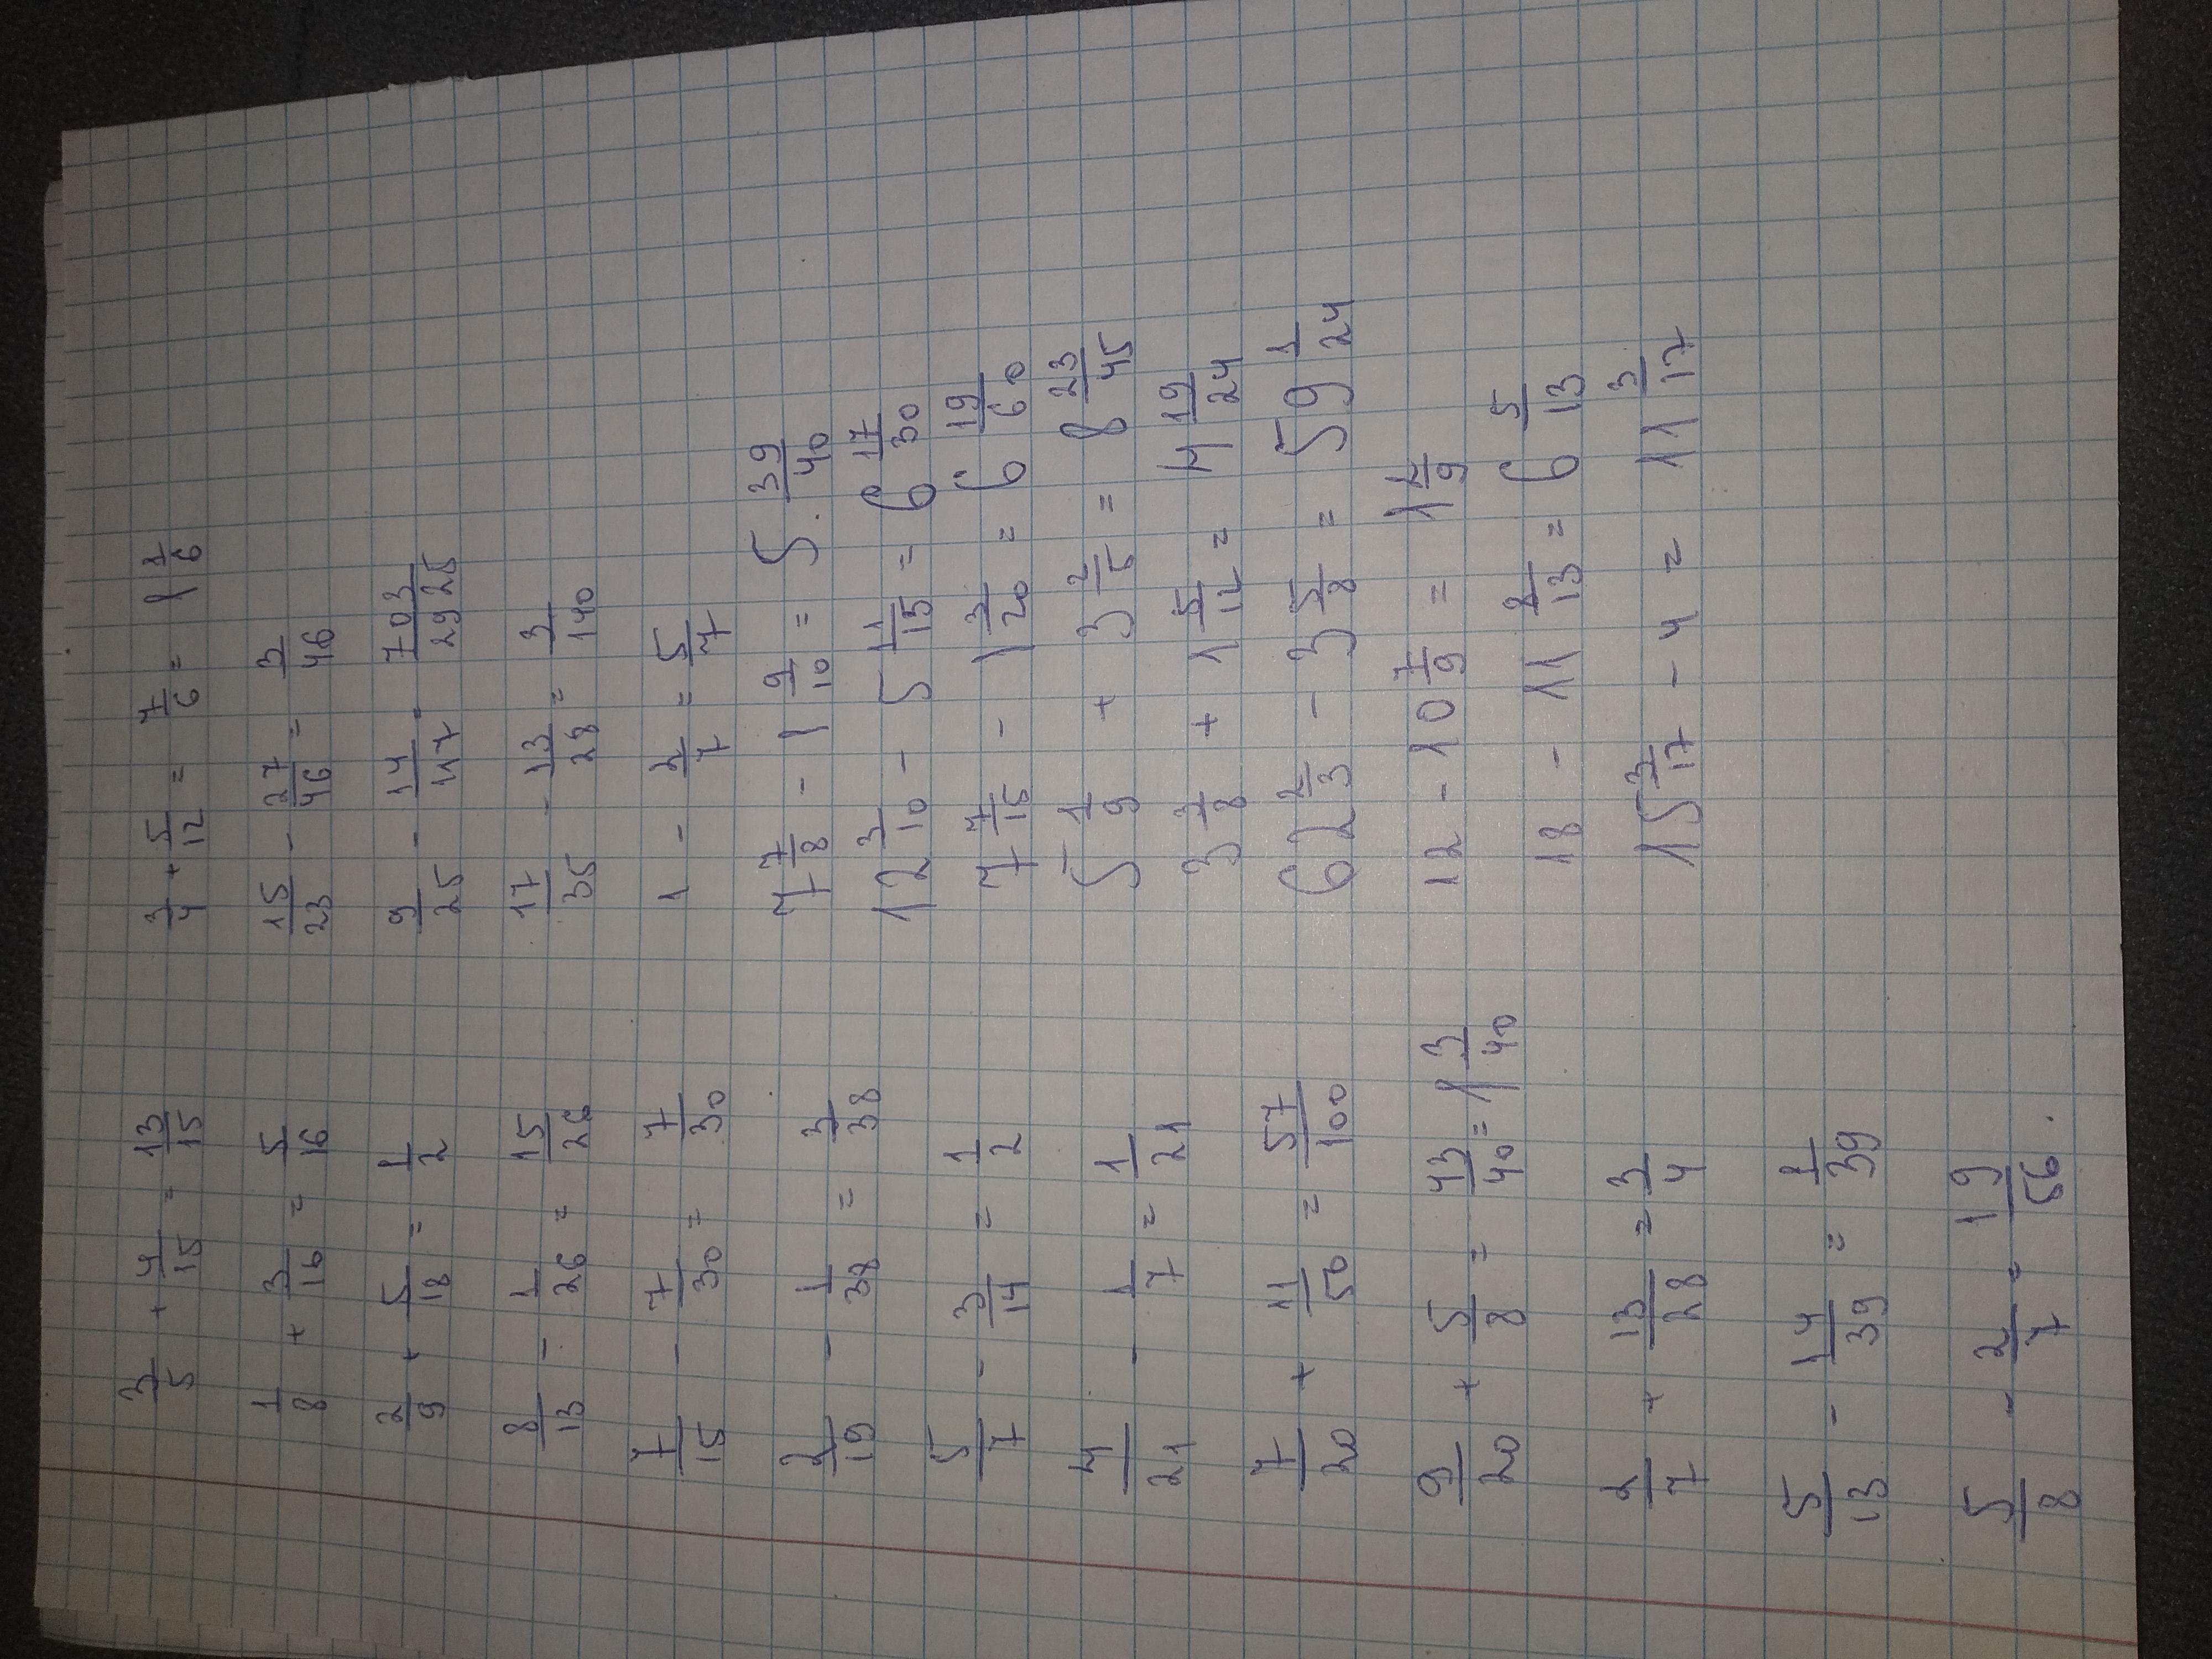 3/5 + 4/15 = 13/15
1/8 + 3/16 = 5/16
2/9 + 5/18 = 1/2
8/13 - 1/26 = 15/26
7/15 - 7/30 = 7/30
2/19 - 1/38 = 3/38
5/7 - 3/14 = 1/2
4/21 - 1/7 = 1/21
7/20 + 11/50 = 57/100
9/20 + 5/8 = 43/40 = 1 3/40
2/7 + 13/28 = 3/4
5/13 - 14/39 = 1/39
5/8 - 2/7 = 19/56.
3/4 + 5/12 = 7/6 = 1 1/6
15/23 - 27/46 = 3/46
9/25 - 14/117 = 703/2925
17/35 - 13/28 = 3/140
1 - 2/7 = 5/7
7 7/8 - 1 9/10 = 5 39/40
12 3/10 - 5 11/15 = 6 17/30
7 7/15 - 1 3/20 = 6 19/60
5 1/9 + 3 2/5 = 8 23/45
3 3/8 + 1 5/12 = 4 19/24
62 2/3 - 3 5/8 = 59 1/24
12 - 10 7/9 = 1 2/9
18 - 11 8/13 = 6 5/13
15 3/17 - 4 = 11 3/17